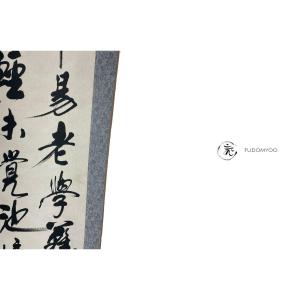 易老學難
輕未覺池
FUDOMYOO